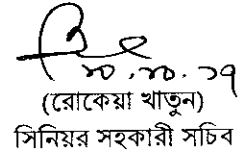 ২০.২০.১৭
(রোকেয়া খাতুন)
সিনিয়র সহকারী সচিব